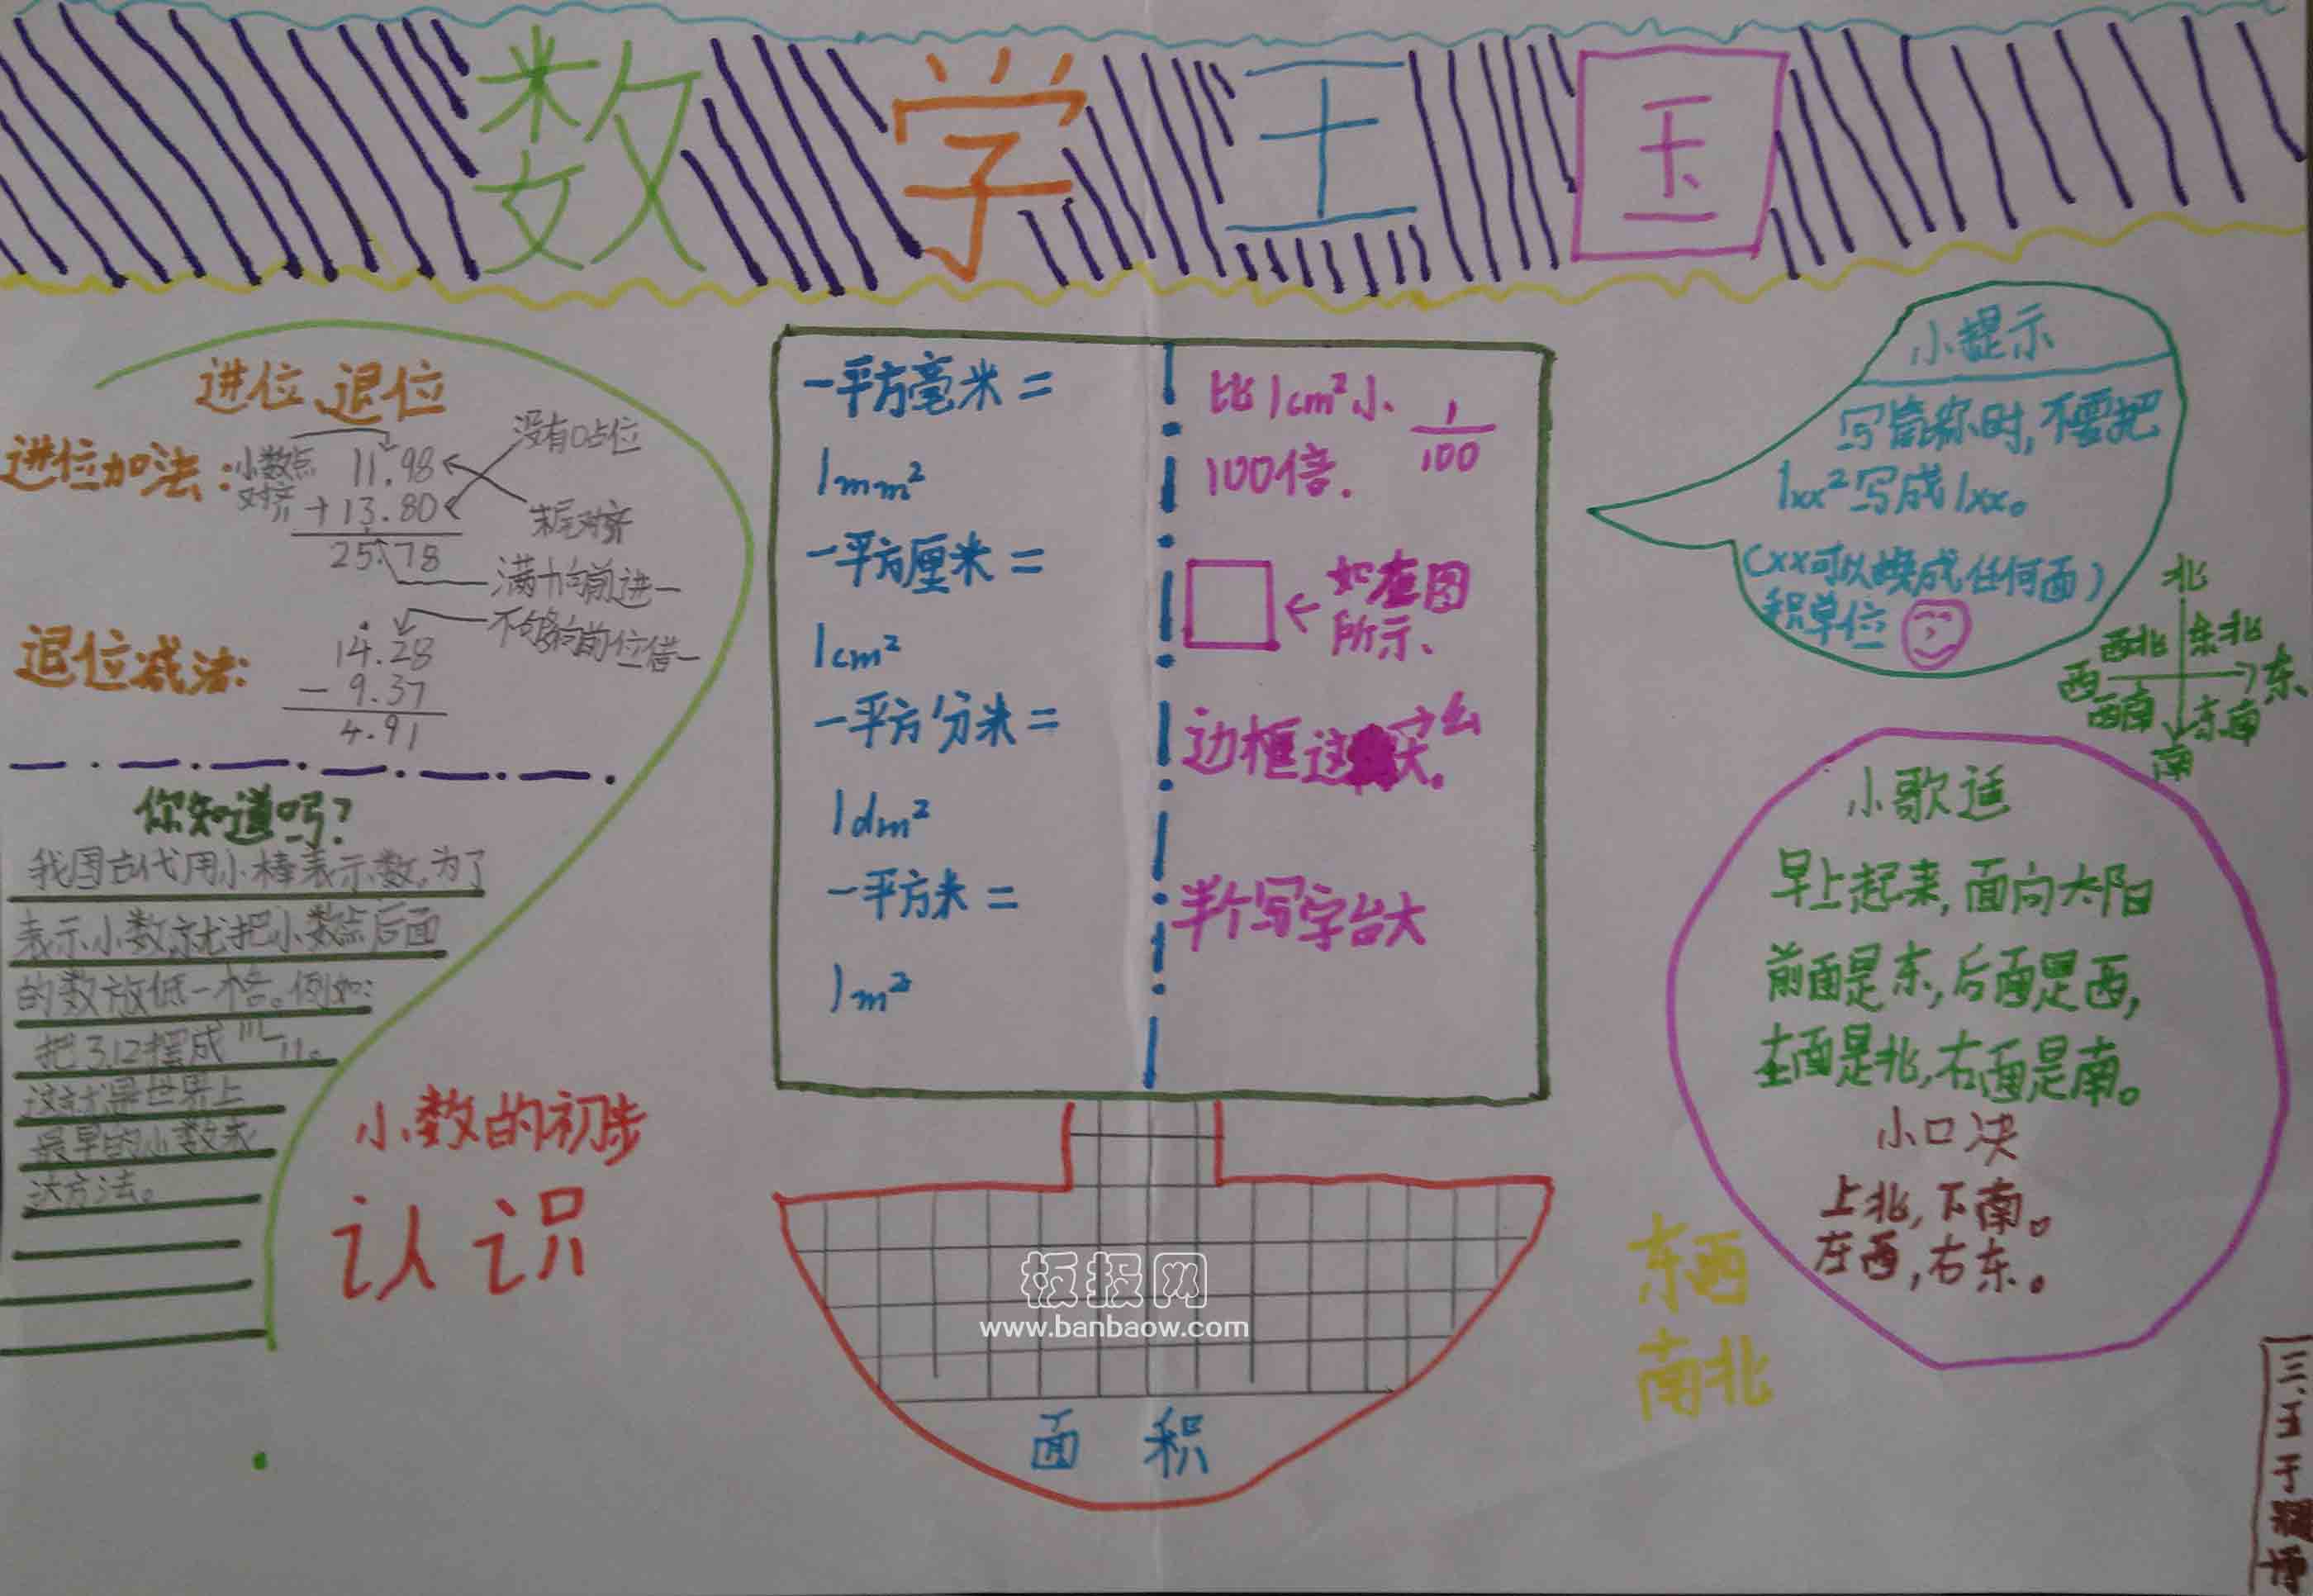 数学王国
进位、退位
进位加法：
小数点
对齐
11.98
+13.80
25.78
没有0占位
末尾对齐
满十向前进一
退位减法：
14.28
- 9.37
4.91
不够向前位借一
你知道吗？
我国古代用小棒表示数，为了
表示小数，就把小数点后面
的数放低一格。例如：
把3.12摆成
这就是世界上
最早的小数表
达方法。
小数的初步
认识
一平方毫米＝
1mm²
一平方厘米＝
1cm²
一平方分米＝
1dm²
一平方米＝
1m²
比1cm²小
100倍.
1/100
如图
所示、
边框这么大.
半个写字台大
面积
板报网
www.banbaow.com
小提示
写简称时，不要把
1xx²写成1xx。
（xx可以换成任何面）
积单位
北
西北 东北
西 东
西南 东南
南
小歌谣
早上起来，面向太阳
前面是东，后面是西，
左面是北，右面是南。
小口决
上北，下南。
左西，右东。
东西
南北
三、五
于